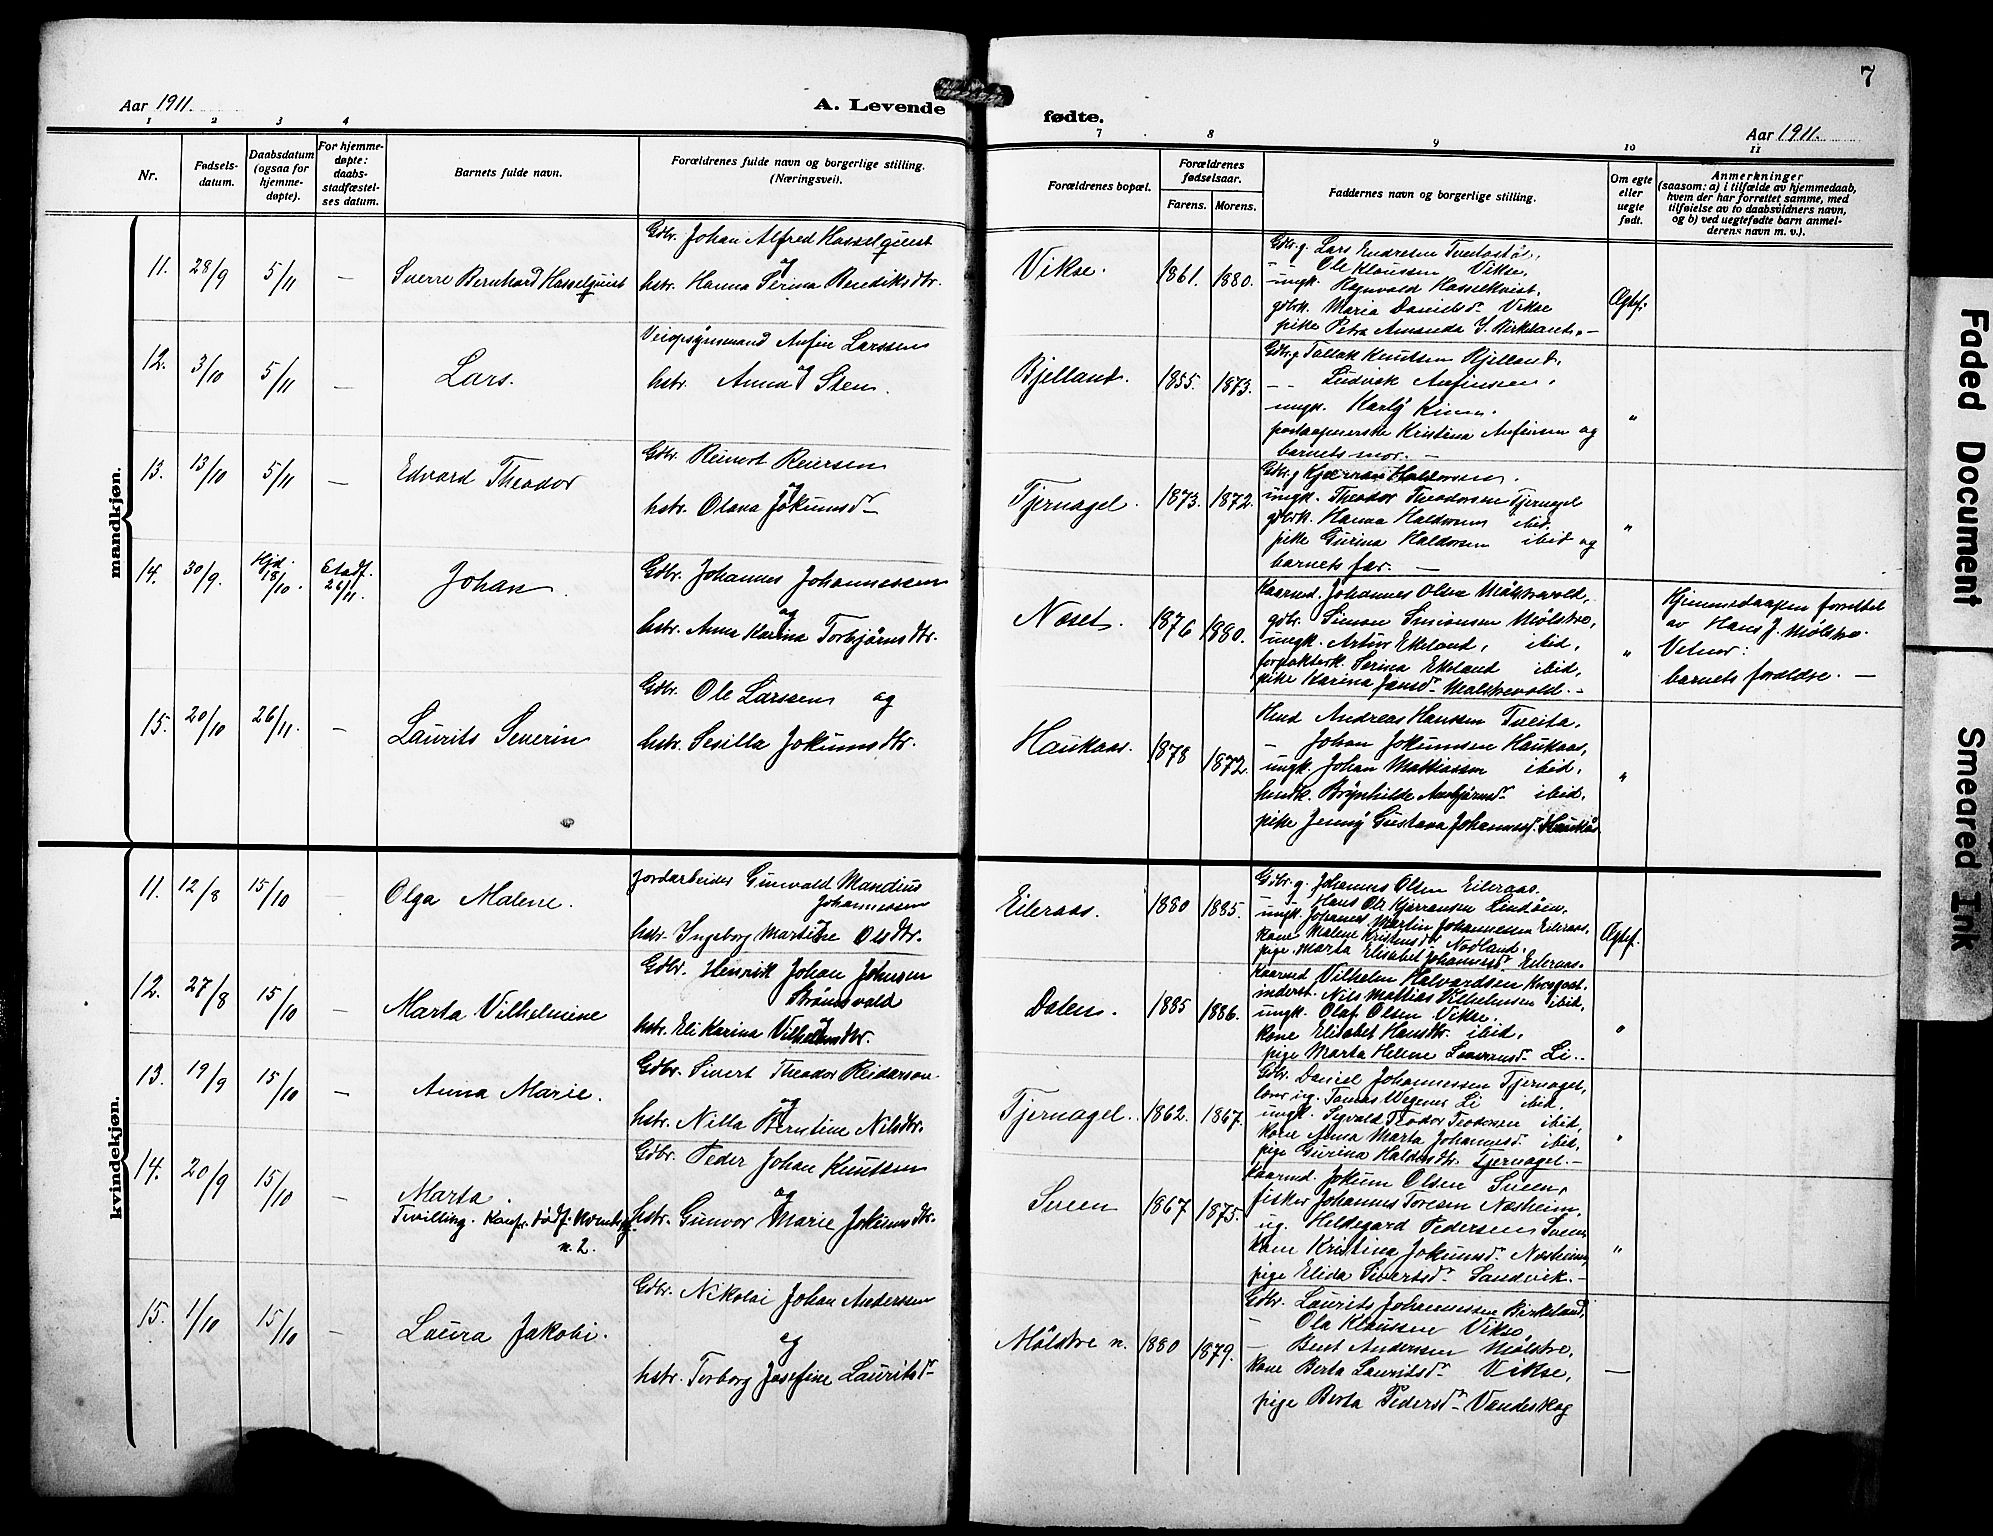 Aar 1911.
A. Levende
fødte.
7
Aar 1911.
1 2 3 4
7 8 9 10 11
Nr.
Fødsels-
datum.
Daabsdatum
(ogsaa for
hjemme-
døpte).
For hjemme-
døpte:
daabs-
stadfæstel-
ses datum.
Barnets fulde navn.
Forældrenes fulde navn og borgerlige stilling.
(Næringsvei).
Forældrenes bopæl.
Forældrenes
fødselsaar.
Farens. Morens.
Faddernes navn og borgerlige stilling.
Om egte
eller
uegte
født.
Anmerkninger
(saasom: a) i tilfælde av hjemmedaab,
hvem der har forrettet samme, med
tilføielse av to daabsvidners navn,
og b) ved uegtefødte barn anmel-
derens navn m. v.).
mandkjøn.
11. 28/9 5/11 — Sverre Bernhard Hasselquist
Gdbr. Johan Alfred Hasselquist
og
hstr. Hanna Serina Bendiksdtr.
Vikse. 1861. 1880.
Gdbr.g. Lars Endresen
" Ole Klaussen Vikse,
ungk. Ragnvald Hasselkvist.
gdbrk. Maria Danielsd. Vikse
pike Petra Amanda S. Birkeland. —
Egtef.
12. 3/10 5/11 — Lars.
Veiopsynsmand Anfin Larssen
og
hstr. Anna Sten.
Bjelland. 1855. 1873.
Gdbr.g Tallak Knutsen Bjelland,
- - Ludvik Anfinssen,
ungk. Karly
postaapnerske Kristina Anfinsen og
barnets mor. —
"
13. 13/10 5/11 — Edvard Theodor
Gdbr. Reinert Reiersen
og
hstr. Olava Jokumsd.
Tjernagel. 1873. 1872.
Gdbr.g Haldorsen.
ungk. Theodor Theodorsen Tjernagel
gdbrk. Hanna Haldorsen ibid.
pike Gurina Haldorsen ibid og
barnets far. —
"
14. 30/9. Hjd. 18/10 Stadf. 26/11 Johan.
Gdbr. Johannes Johannessen
og
hstr. Anna Karina Torbjørnsdtr.
Næset. 1876 1880.
Kaarmd. Johannes Olsen
gdbr. Simon Simonsen Mølstre,
ungk. Artur Ekeland, ibid,
forpakterk. Serina Ekeland ibid,
pike Karina Jansd. —
"
Hjemmedaapen forrettet
av Hans J. Mølstre.
Vitner:
barnets foreldre. —
15. 20/10 26/11. — Laurits Severin
Gdbr. Ole Larssen og
hstr. Sesilla Jokumsdtr.
Haukaas. 1878 1872.
Hmd Andreas Hanssen Tveita,
- Johan Jokumsen Haukaas,
ungk. Johan Mattiassen ibid,
hmdk. Brynhilde ibid,
pike Jenny Gustava Johannesd. Haukås
"
kvindekjøn.
11. 12/8 15/10 — Olga Malene.
Jordarbeider Gunvald Mandius
Johannessen
og
hstr. Ingeborg Martine Olsdtr.
Eileraas. 1880 1885.
Gdbr. g. Johannes Olsen Eileraas.
- g - Hans Ole Lindøen.
ungk. Johannes Martin Johannessen Eileraas.
kone Malene Kristensdtr Nodland.
pige. Marta Elisabet Johannesd. Eileraas.
Egtef.
12. 27/8 15/10 — Marta Vilhelmine
Gdbr. Henrik Johan Johnsen
Strømsvold
og
hstr. Eli Karina Vilhelmsdtr.
Dalen. 1885 1886.
Kaarmd Vilhelm Halvardsen
inderst. Nils Mattias Vilhelmsen ibid,
ungk. Olaf Olsen Vikse.
kone Elisabet Hansdtr. ibid,
pige Marta Helene Li. -
"
13. 19/9 15/10 — Anna Marie.
Gdbr. Sivert Theodor Reidarson
og
hstr. Nilla Berntine Nilsdtr.
Tjernagel. 1862. 1867.
Gdbr. Daniel Johannessen Tjernagel,
Tomas Wegener Li ibid.
ungk. Sigvald Teodor Teodorsen ibid,
kone Anna Marta Johannesd. ibid,
pige Gurina Haldorsdtr. Tjernagel. —
"
14. 20/9 15/10 — Marta.
Tvilling. Konfr. dødf. Kvindekj.
n. 2.
Gdbr. Peder Johan Knutsen
og
hstr. Gunvor Marie Jokumsdtr.
Sveen 1867 1875.
Kaarmd. Jokum Olsen Sveen,
fisker Johannes Toresen Næsheim,
ug. Hildegard Pedersen Sveen
kone Kristina Jokumsd. Næsheim,
pige Elida Sivertsd. Sandvik. —
"
15. 1/10 15/10 — Laura Jakobi.
Gdbr. Nikolai Johan Anderssen
og
hstr. Torborg Josefine Lauritsd.
Mölstre n. 1880 1879.
Gdbr. Laurits Johannessen Birkeland,
- Ola Klaussen Vikse
- Bent Anderssen Mølstre,
kone Berta Lauritsd. Vikse,
pige Berta Pedersd. Vandeskog
—
Faded Document
Smeared Ink